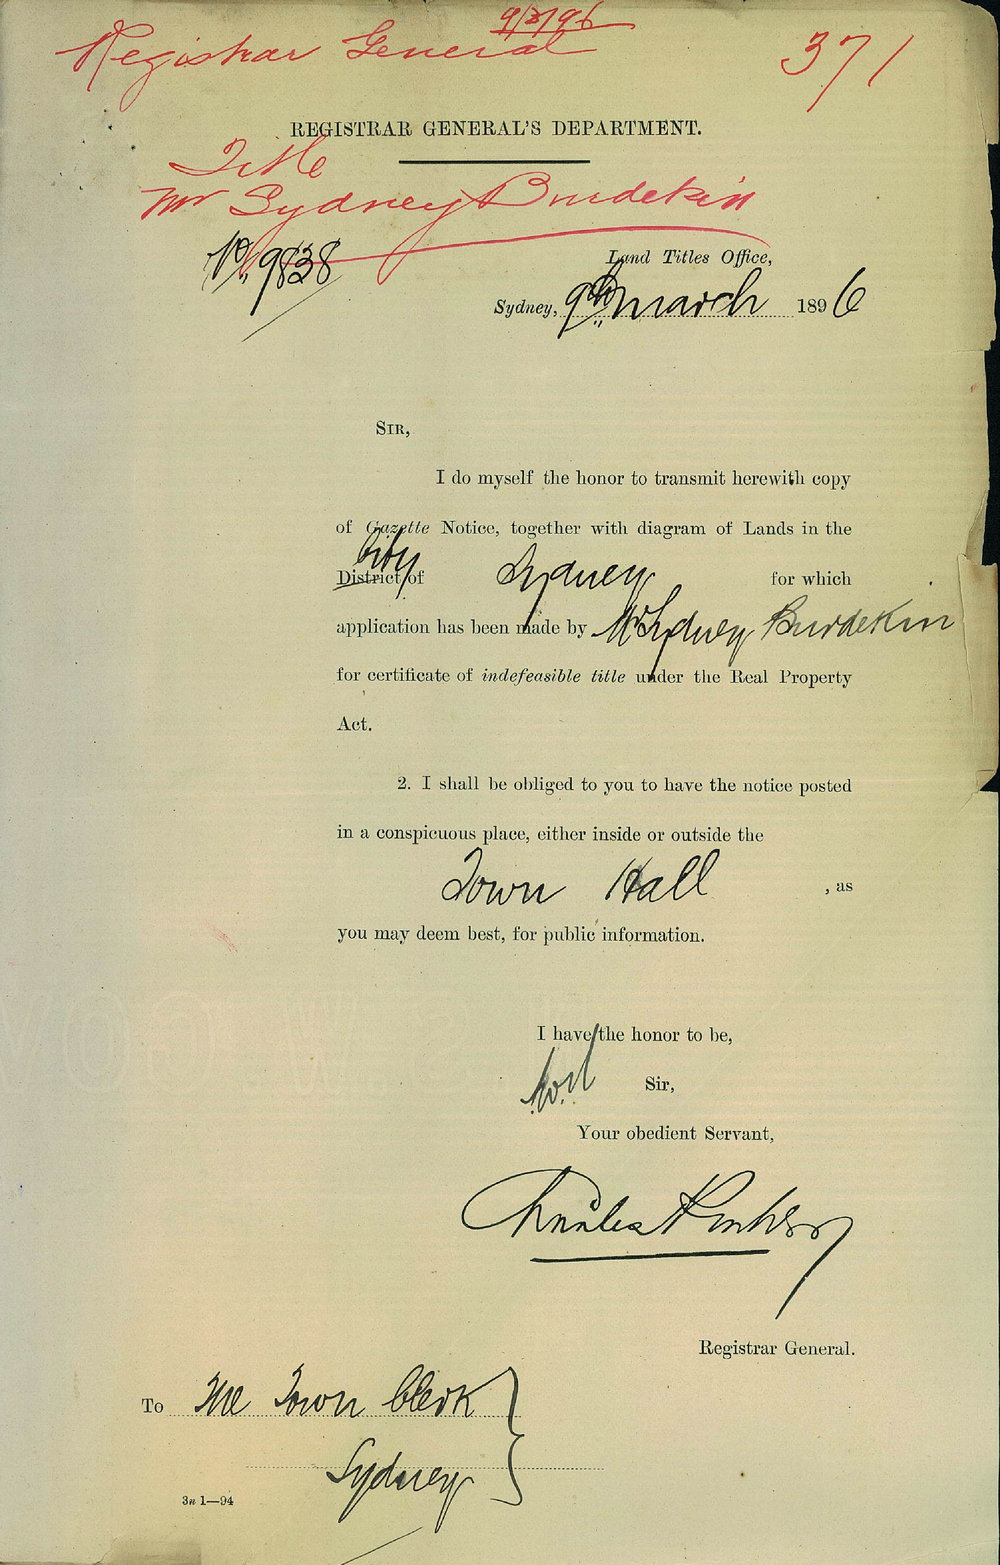 9/3/96
Registrar General
371
REGISTRAR GENERAL'S DEPARTMENT.
Title
Mr Sydney Burdekin
No. 9838
Land Titles Office,
Sydney, 9th March 1896
SIR,
I do myself the honor to transmit herewith copy
of Gazette Notice, together with diagram of Lands in the
City
District of Sydney for which
application has been made by Mr Sydney Burdekin
for certificate of indefeasible title under the Real Property
Act.
2. I shall be obliged to you to have the notice posted
in a conspicuous place, either inside or outside the
Town Hall , as
you may deem best, for public information.
I have the honor to be,
Sir,
Your obedient Servant,
Charles
Registrar General.
To The Town Clerk
Sydney
3n 1—94